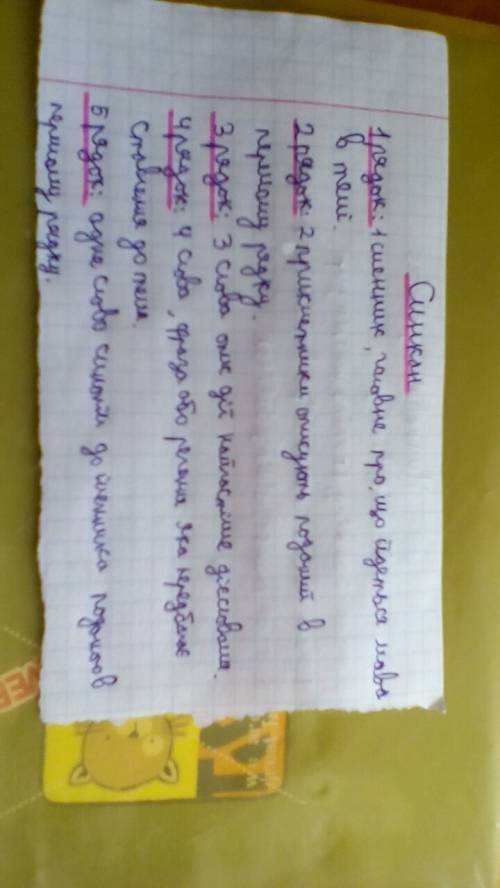 Синкан
1 рядок: 1 іменник, головне про, що йдеться мова
в темі.
2 рядок: 2 прикметники описують поданий в
першому рядку.
3 рядок: 3 слова опис дій найчастіше дієслова.
4 рядок: 4 слова, фраза або речення яка передбачає
ставлення до теми.
5 рядок: одне слово синонім до іменника поданого в
першому рядку.